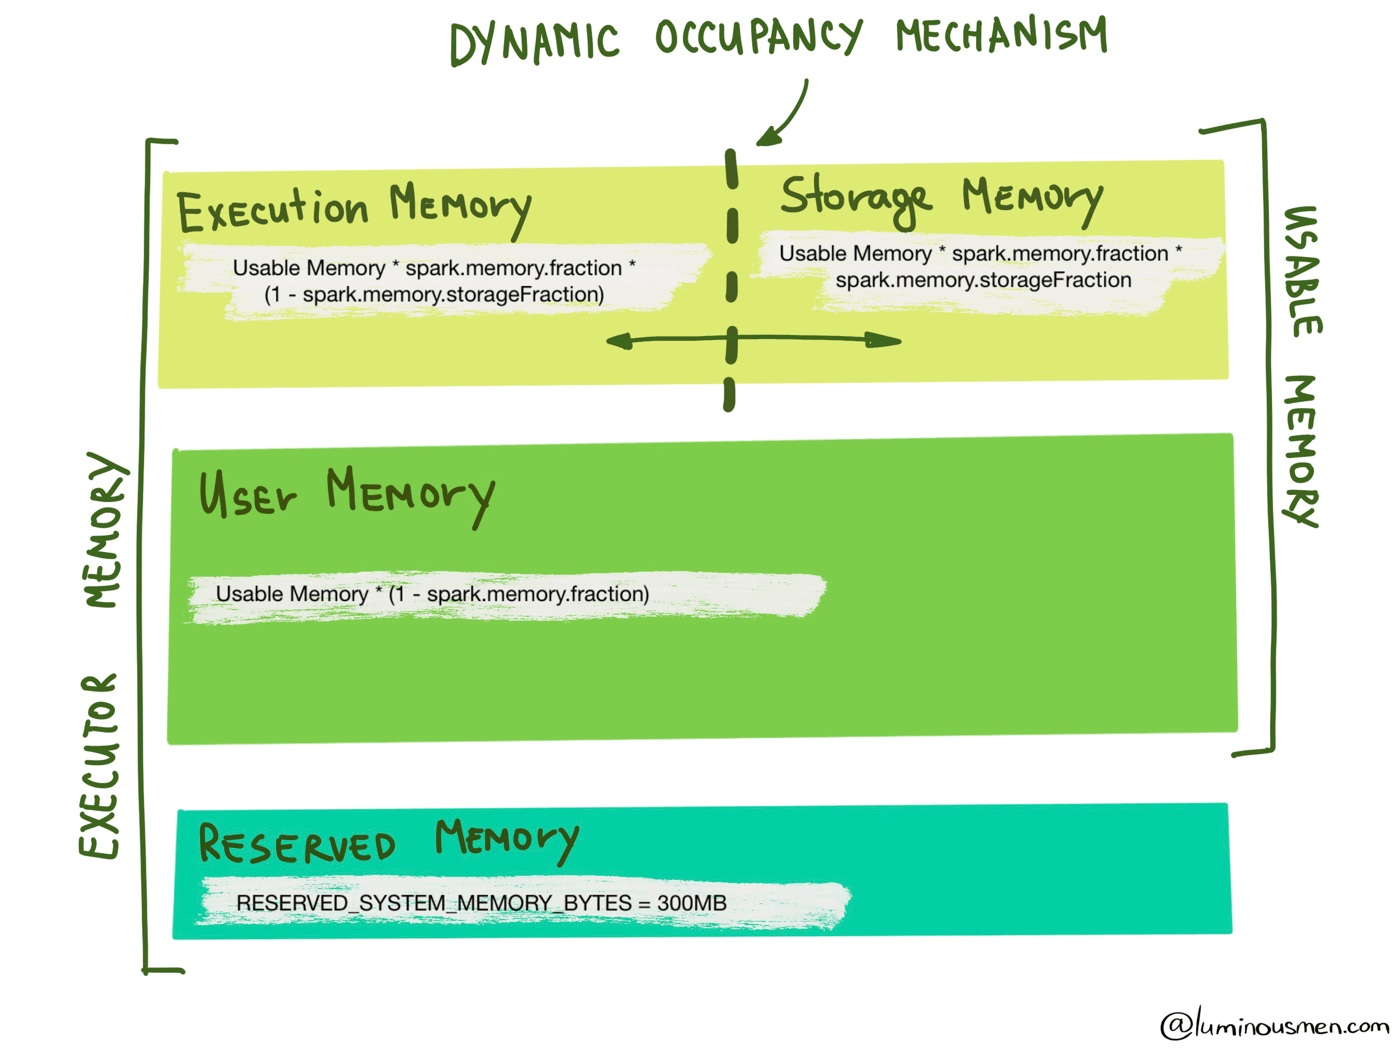 DYNAMIC OCCUPANCY MECHANISM
EXECUTION MEMORY
Usable Memory * spark.memory.fraction *
(1 - spark.memory.storageFraction)
Storage MEMORY
Usable Memory * spark.memory.fraction *
spark.memory.storageFraction
USER MEMORY
Usable Memory * (1 - spark.memory.fraction)
RESERVED MEMORY
RESERVED_SYSTEM_MEMORY_BYTES = 300MB
EXECUTOR MEMORY
USABLE MEMORY
@luminousmen.com